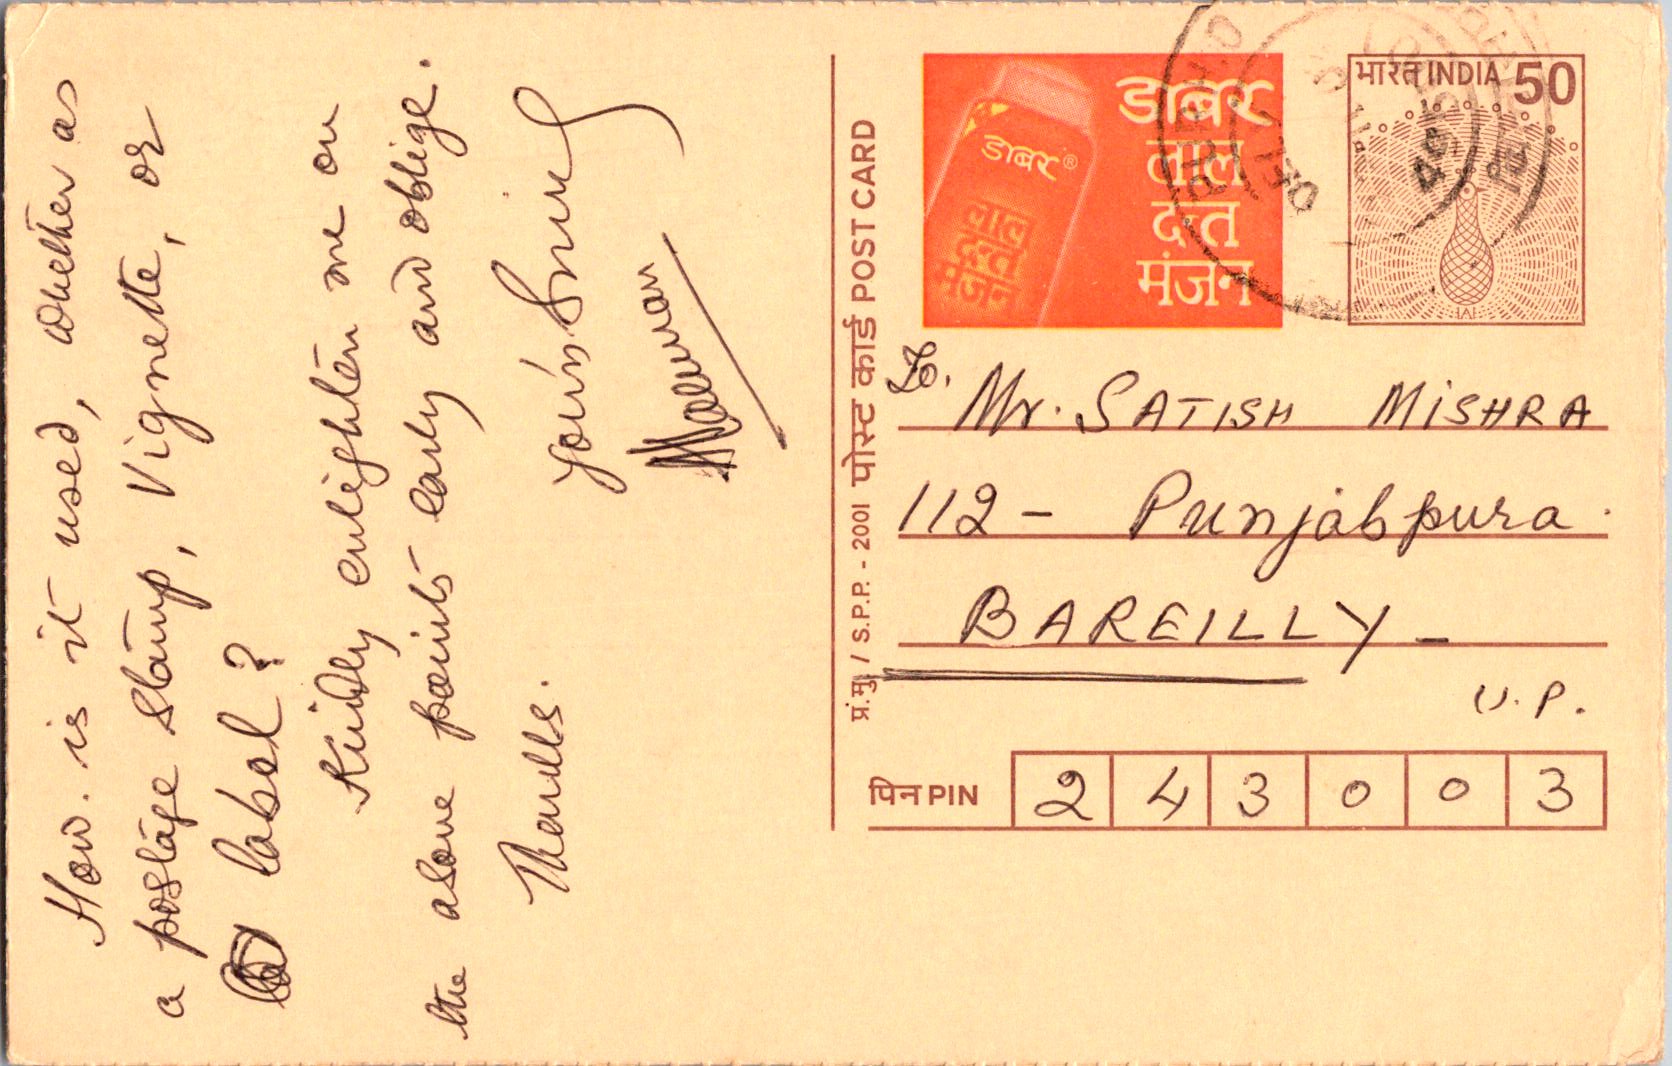 How. is it used, whether as
a postage stamp, Vignette, or
label?
Kindly enlighten me on
the above points early and oblige.
Thanks.
Yours Sincly
प्रं.मु. / S.P.P. - 2001 पोस्ट कार्ड POST CARD
डाबर®
लाल
दन्त
मंजन
डाबर
लाल
दन्त
मंजन
भारत INDIA 50
To.
Mr. SATISH MISHRA
112 - Punjabpura.
BAREILLY -
U.P.
पिन PIN 2 4 3 0 0 3